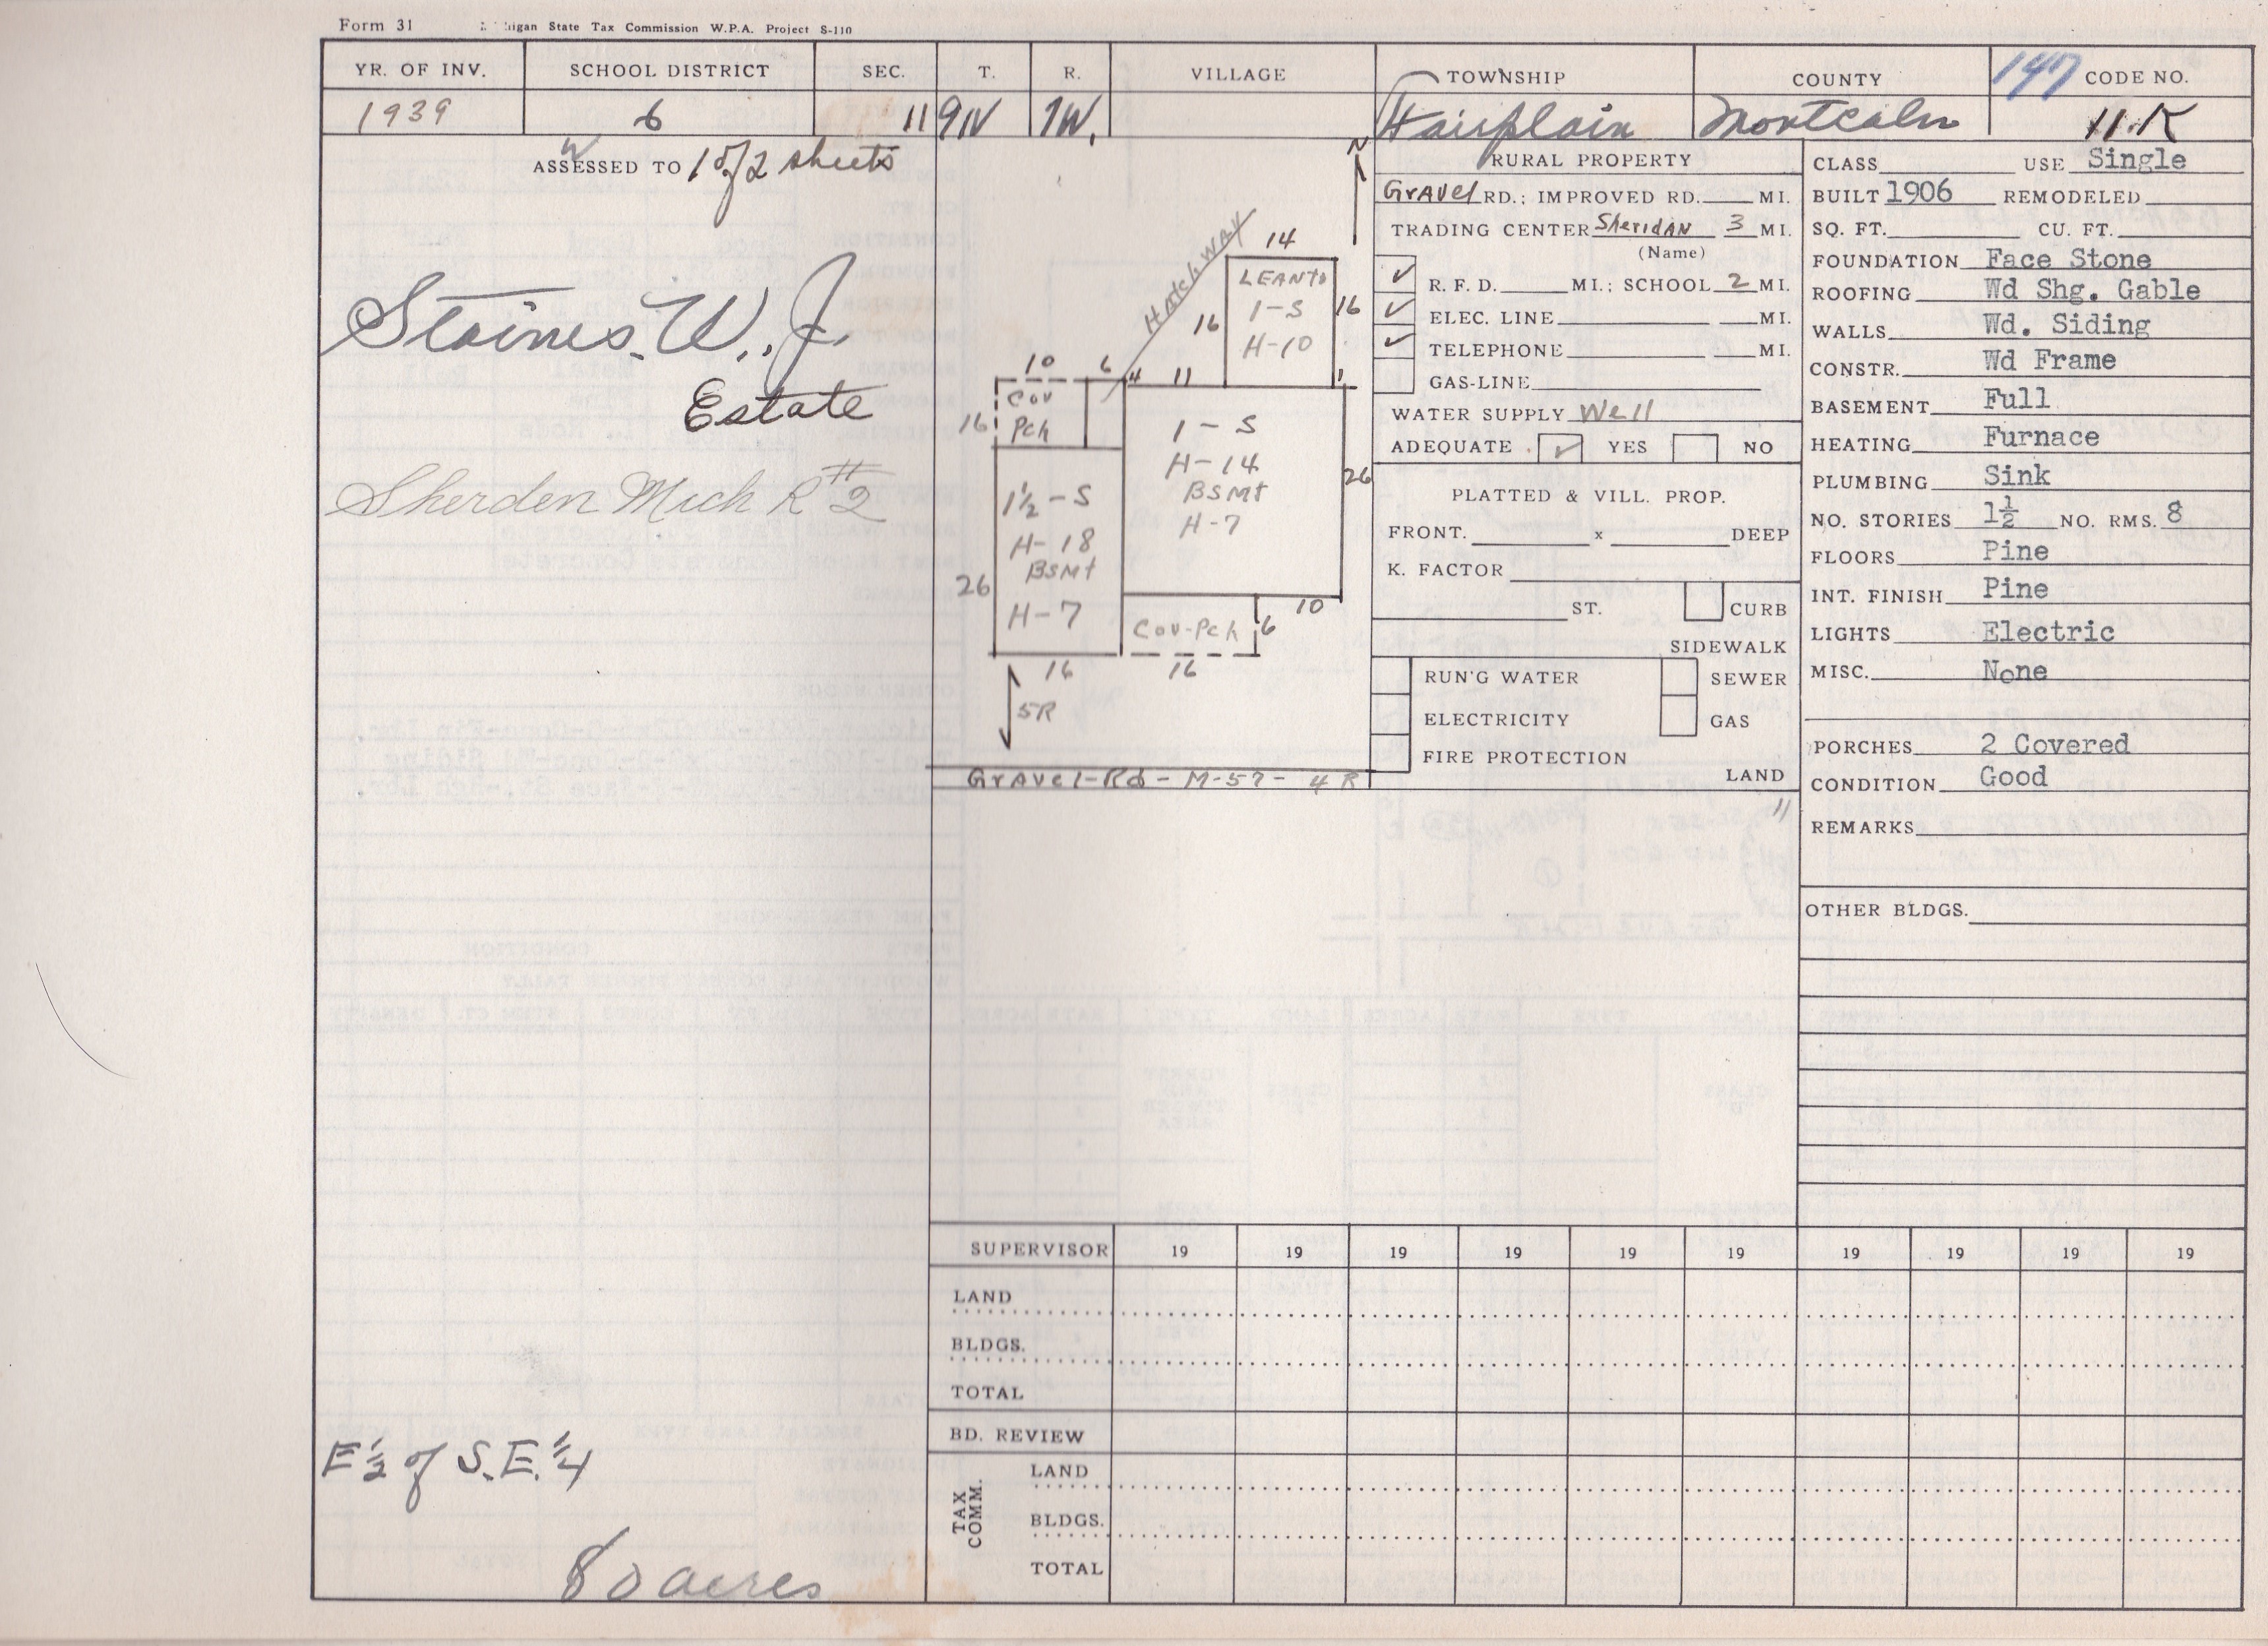 Form 31 higan State Tax Commission W.P.A. Project S-110
YR. OF INV. SCHOOL DISTRICT SEC. T. R. VILLAGE TOWNSHIP COUNTY 147 CODE NO.
1939 6 11 9N 7W. Fairplain Montcalm 11.K
ASSESSED TO 1 of 2 sheets
W
Staines. W. J.
Estate
Sherden Mich R#2
E 1/2 of S.E. 1/4
80 acres
N
Hatchway
14
LEANTO
1-S
H-10
16
16
10
6
4
11
1
Cov
Pch
16
1-S
H-14
BSMt
H-7
26
1½-S
H-18
BSMt
H-7
26
10
Cov-Pch
6
16
16
5R
Gravel-Rd-M-57-4R
RURAL PROPERTY
Gravel RD.; IMPROVED RD. MI.
TRADING CENTER Sheridan 3 MI.
(Name)
✓ R. F. D. MI.; SCHOOL 2 MI.
✓ ELEC. LINE MI.
✓ TELEPHONE MI.
GAS-LINE
WATER SUPPLY Well
ADEQUATE ✓ YES NO
PLATTED & VILL. PROP.
FRONT. x DEEP
K. FACTOR
ST. CURB
SIDEWALK
RUN'G WATER SEWER
ELECTRICITY GAS
FIRE PROTECTION
LAND
11
CLASS USE Single
BUILT 1906 REMODELED
SQ. FT. CU. FT.
FOUNDATION Face Stone
ROOFING Wd Shg. Gable
WALLS Wd. Siding
CONSTR. Wd Frame
BASEMENT Full
HEATING Furnace
PLUMBING Sink
NO. STORIES 1½ NO. RMS. 8
FLOORS Pine
INT. FINISH Pine
LIGHTS Electric
MISC. None
PORCHES 2 Covered
CONDITION Good
REMARKS
OTHER BLDGS.
SUPERVISOR 19 19 19 19 19 19 19 19 19 19
LAND
BLDGS.
TOTAL
BD. REVIEW
TAX COMM.
LAND
BLDGS.
TOTAL